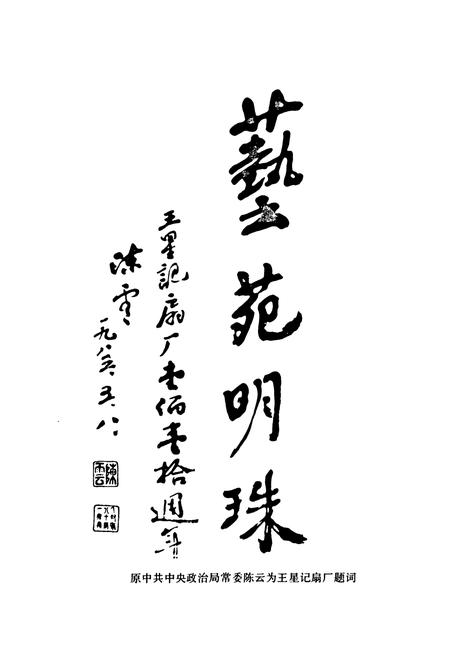 藝苑明珠
王星記扇厂壹佰壹拾週年
陳雲
一九八五、五、八、
陳云
原中共中央政治局常委陈云为王星记扇厂题词